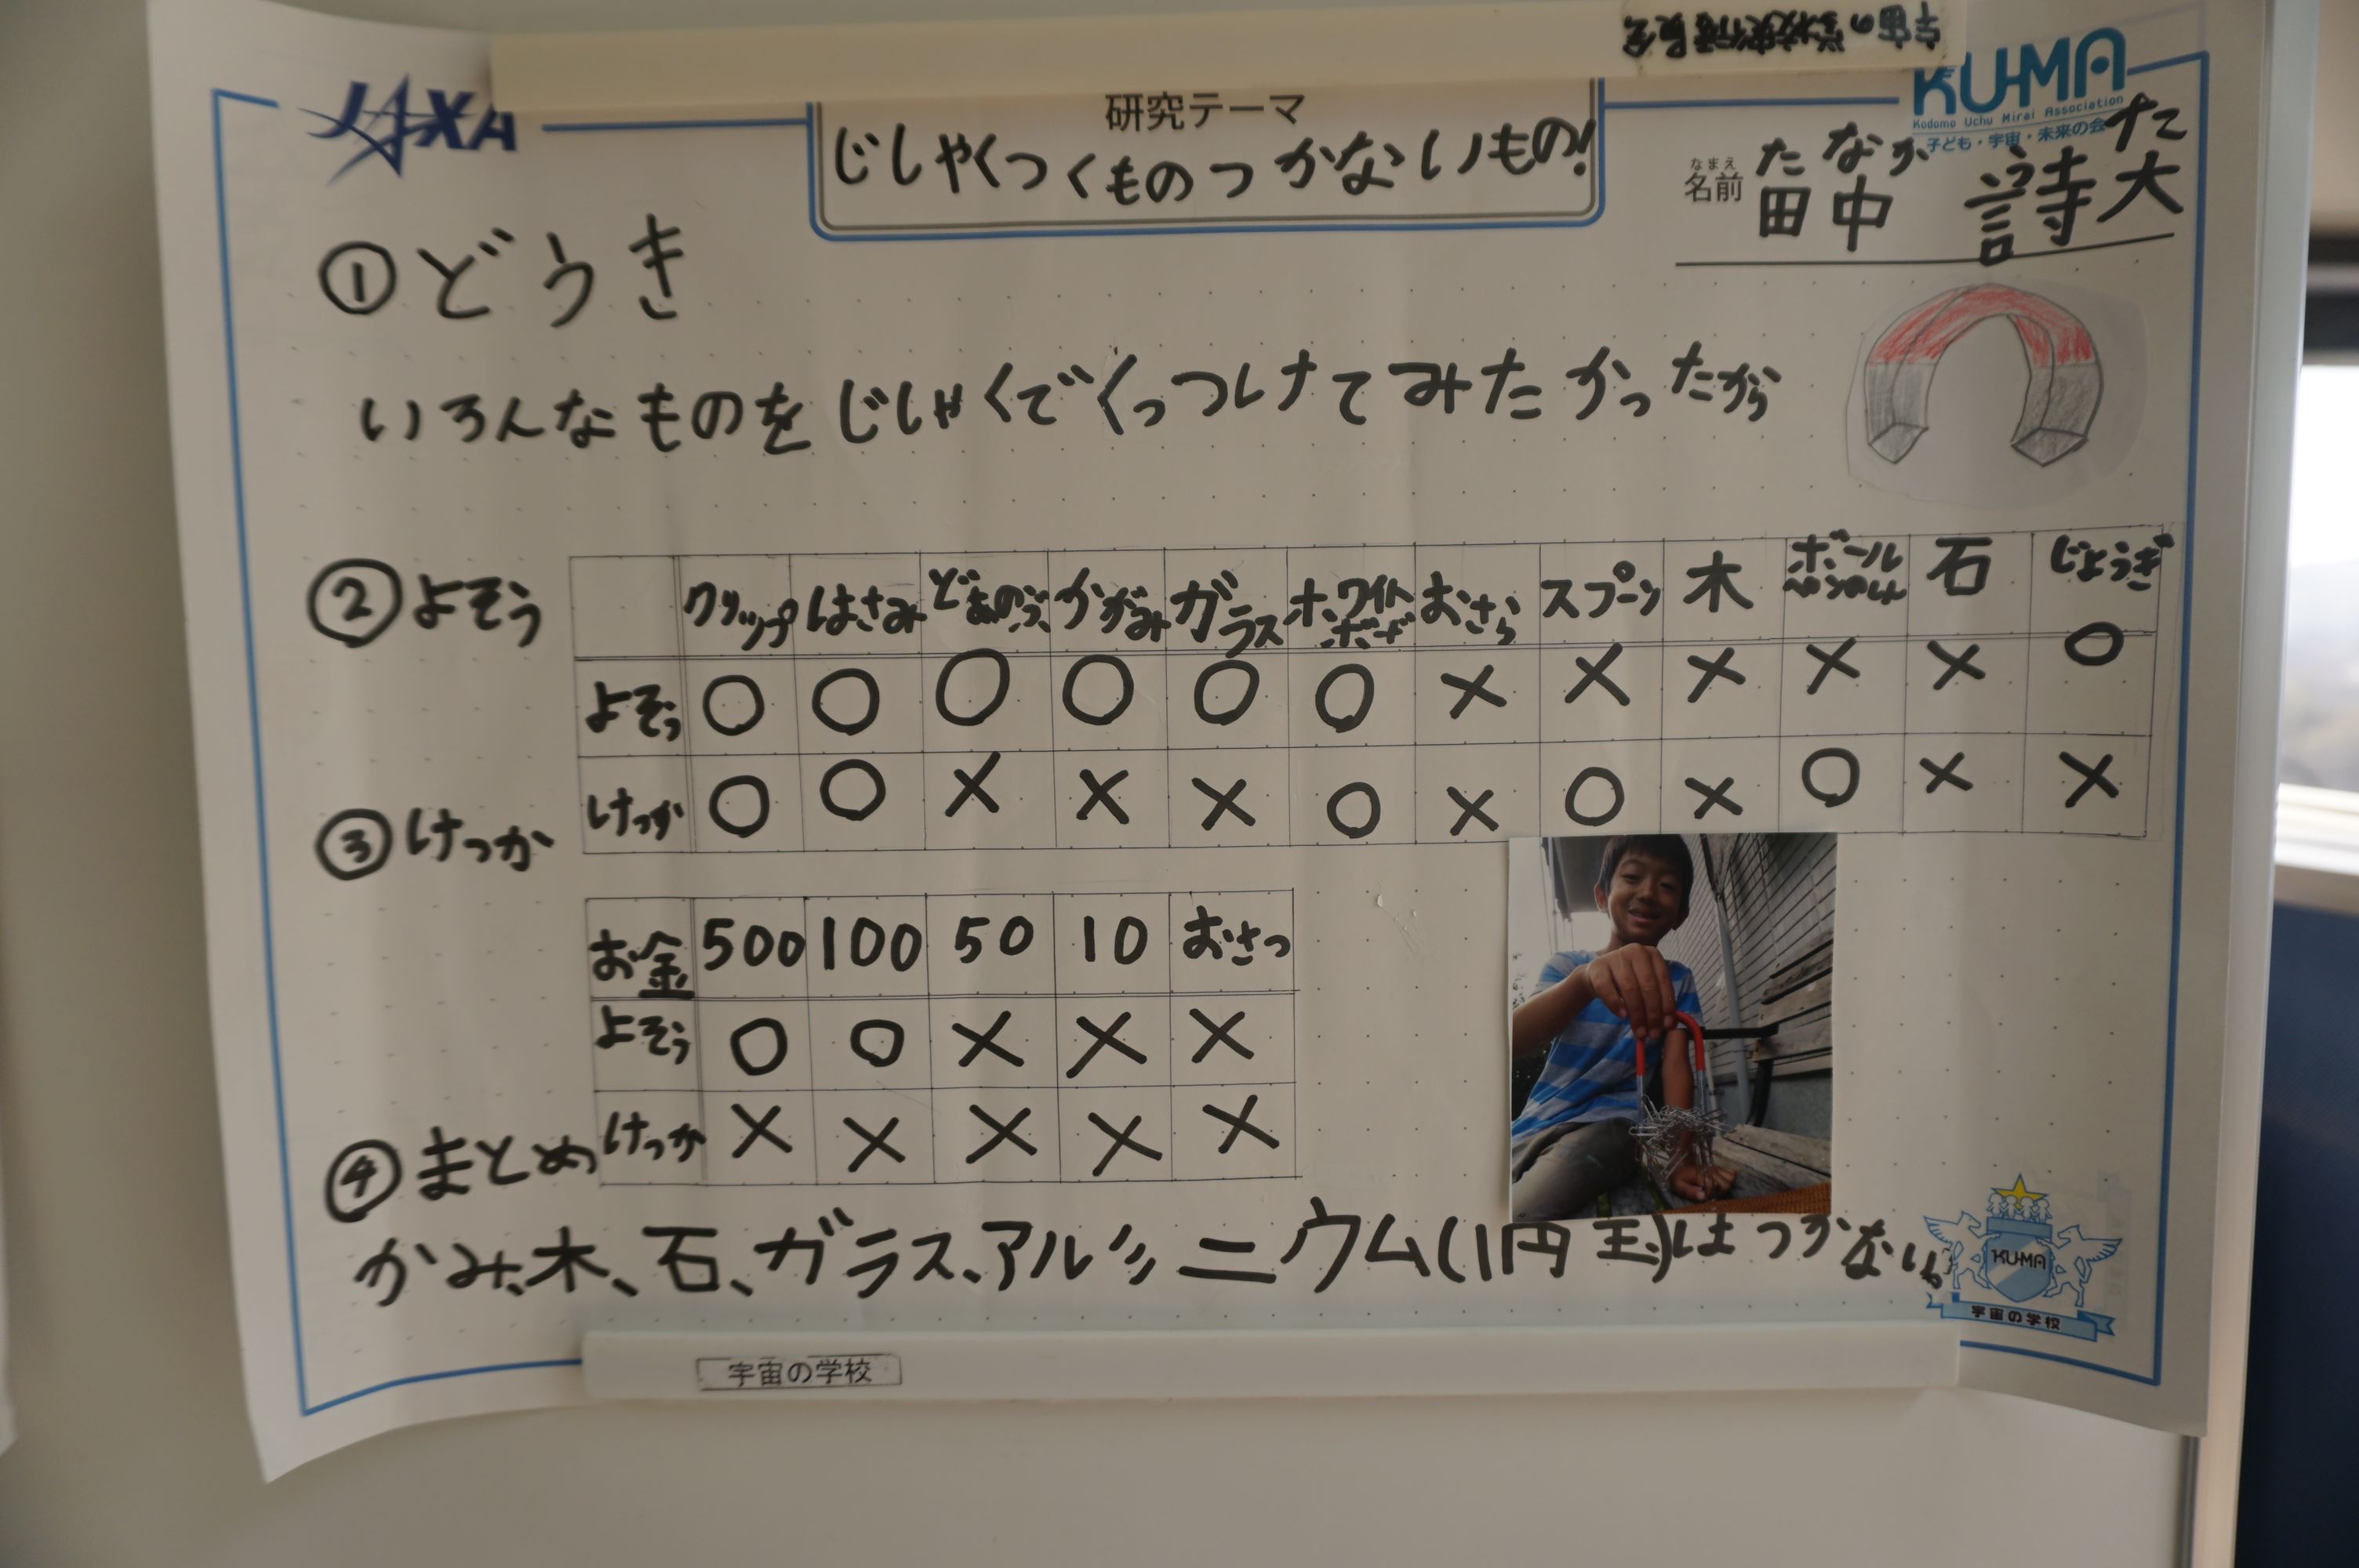 宇宙の学校実行委員会
JAXA
KU-MA
Kodomo Uchu Mirai Association
子ども・宇宙・未来の会
研究テーマ
じしゃくつくものつかないもの!
なまえ
名前
たなか うた
田中 詩大
①どうき
いろんなものをじしゃくでくっつけてみたかったから
②よそう
クリップ はさみ どあのぶ かがみ ガラス ホワイトボード おさら スプーン 木 ボールペンの 石 じょうぎ
よそう ○ ○ ○ ○ ○ ○ × × × × × ○
③けっか
けっか ○ ○ × × × ○ × ○ × ○ × ×
お金 500 100 50 10 おさつ
よそう ○ ○ × × ×
けっか × × × × ×
④まとめ
かみ、木、石、ガラス、アルミニウム(1円玉)はつかない。
KU-MA
宇宙の学校
宇宙の学校